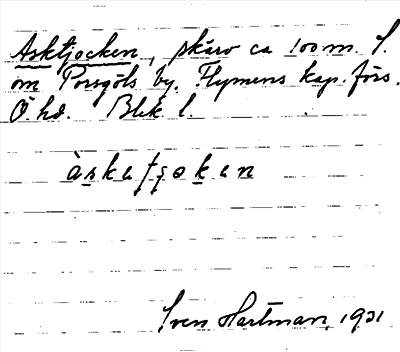 Asktjocken, skärv ca 100 m. S.
om Porsgöls by. Flymens kap. förs.
Ö. hd. Blek. l.
àskatȿokan
Sven Hartman, 1931